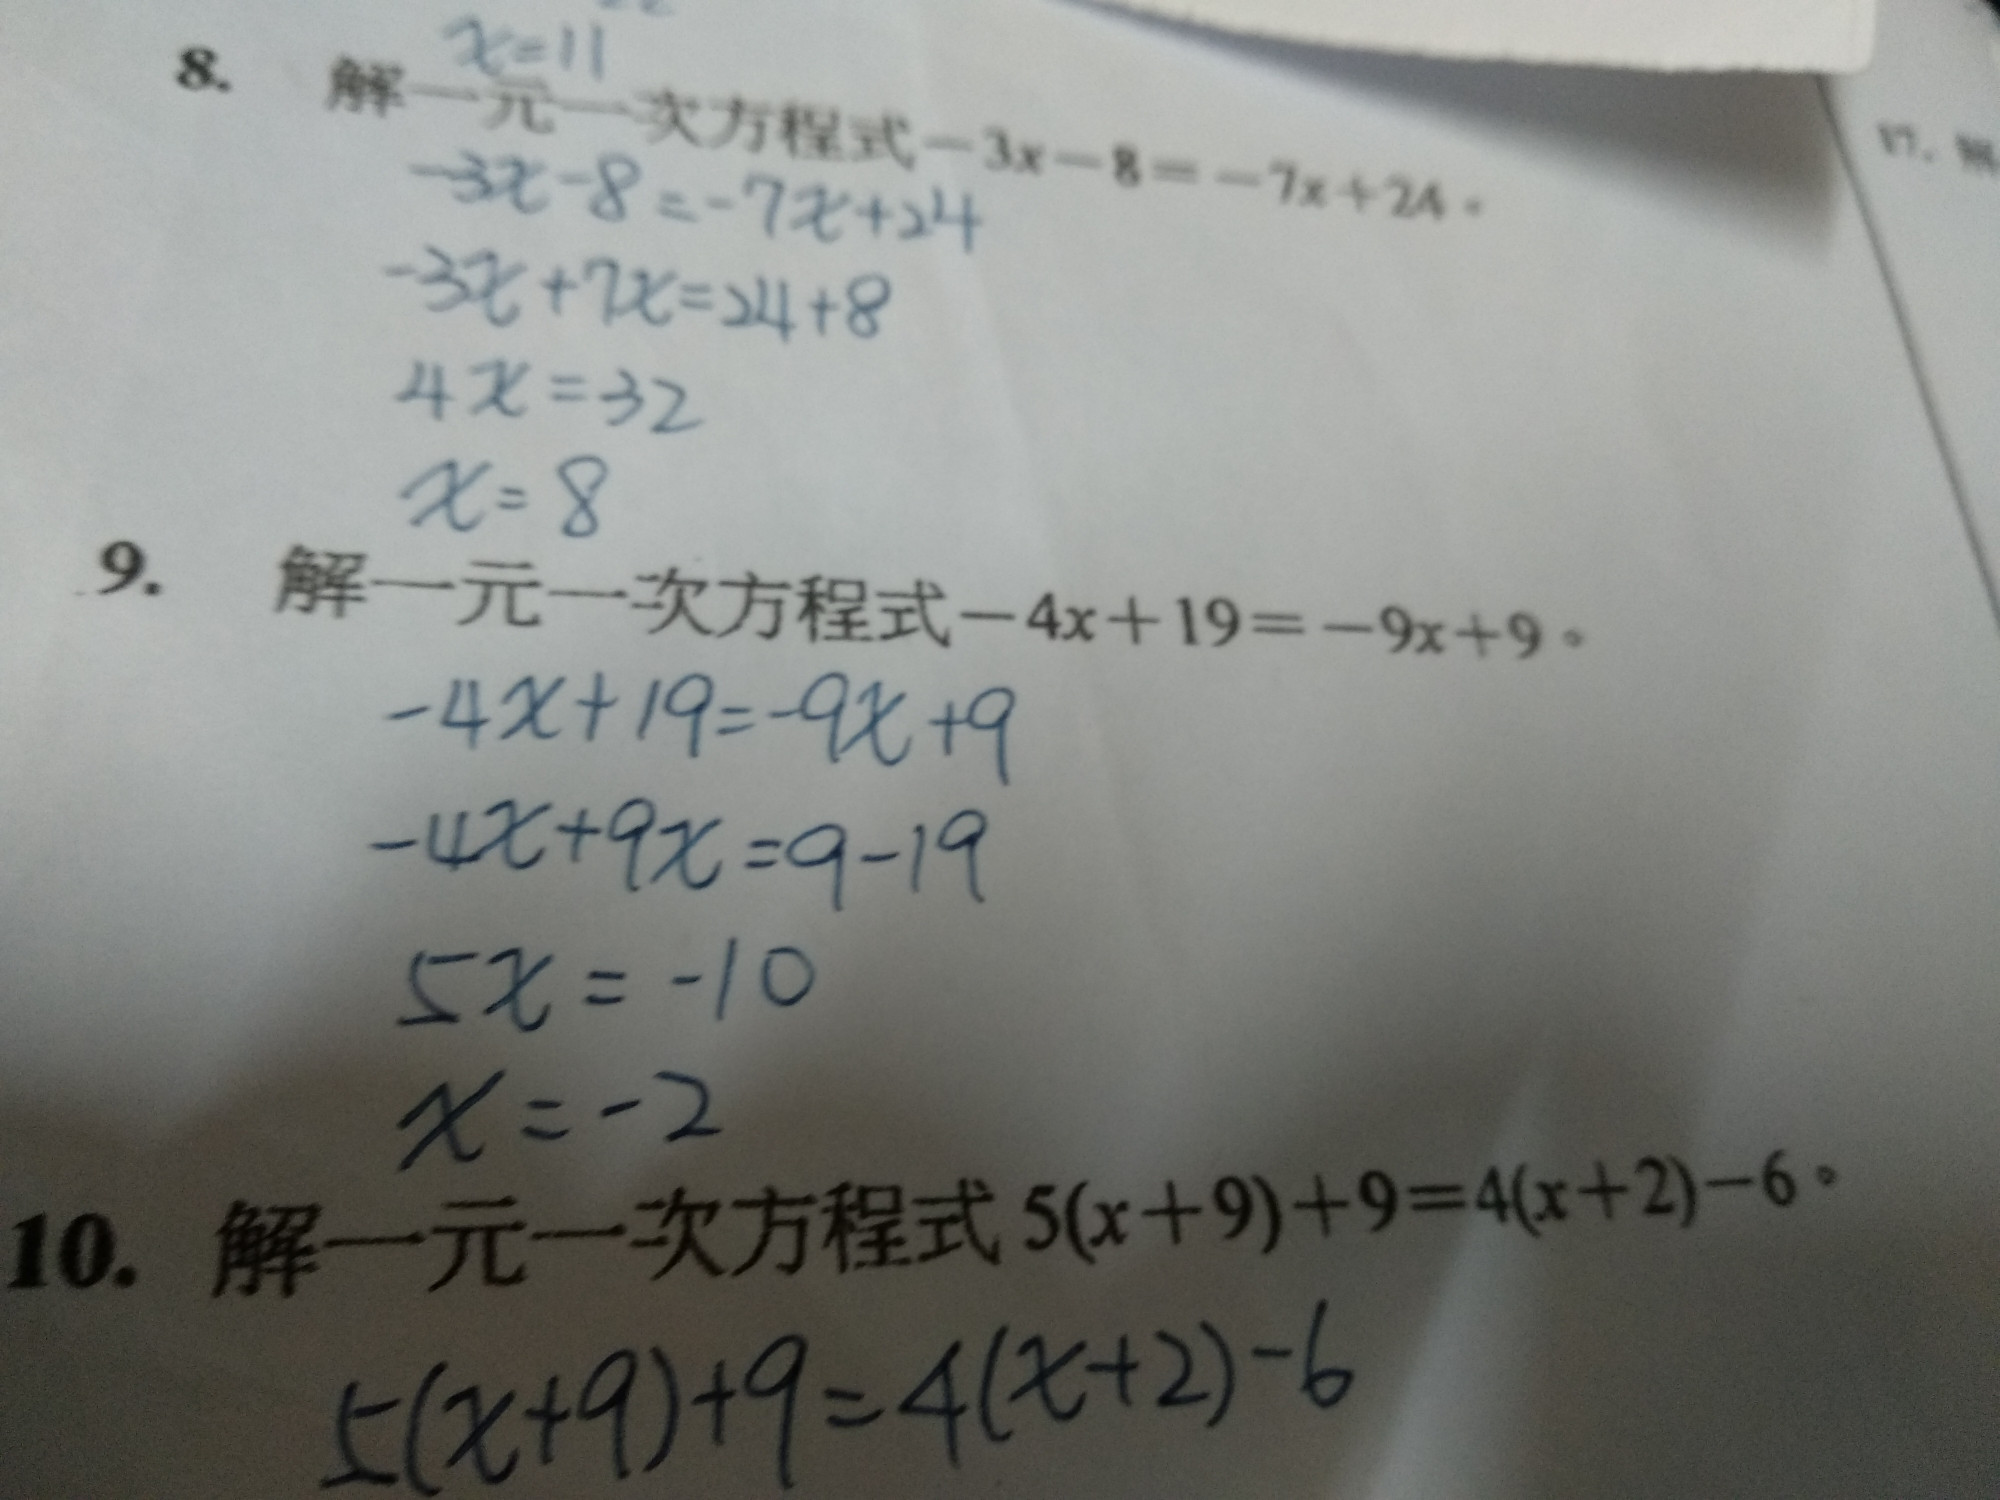 x=11
8. 解一元一次方程式－3x－8＝－7x＋24。
-3x-8=-7x+24
-3x+7x=24+8
4x=32
x=8
9. 解一元一次方程式－4x＋19＝－9x＋9。
-4x+19=-9x+9
-4x+9x=9-19
5x=-10
x=-2
10. 解一元一次方程式 5(x＋9)＋9＝4(x＋2)－6。
5(x+9)+9=4(x+2)-6
17.